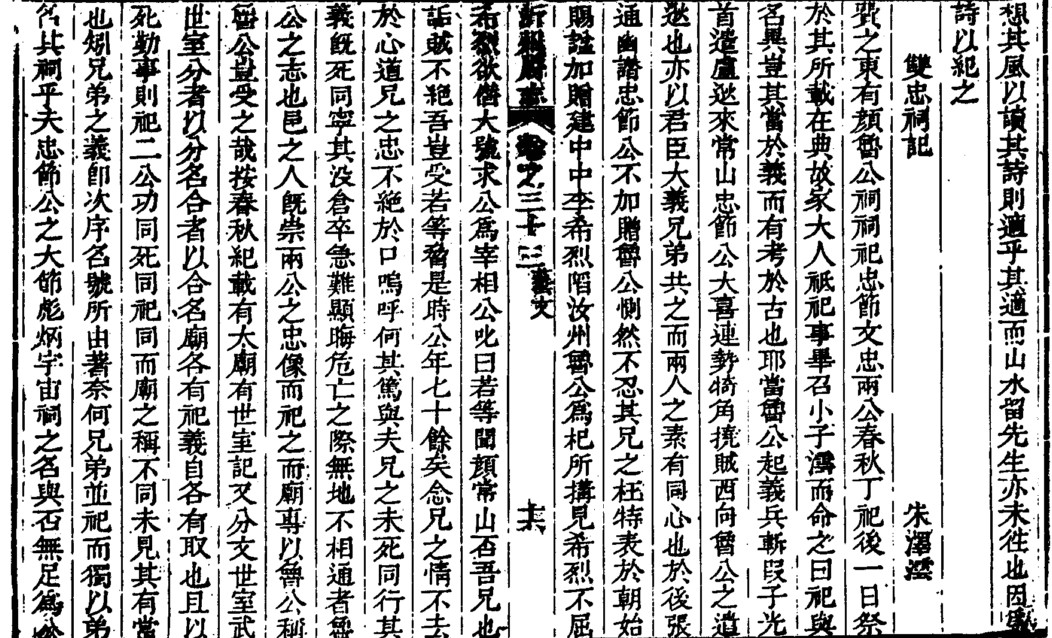 想其風以讀其詩則適乎其適而山水留先生亦未徃也因
詩以紀之
雙忠祠記 朱澤澐
費之東有顔魯公祠祠祀忠節文忠兩公春秋丁祀後一日祭
於其所載在典奴家大人祇祀事畢召小子澐而命之曰祀與
名異豈其當於義而有考於古也耶當魯公起義兵斬叚子光
首遣盧逖來常山忠節公大喜連勢犄角撓賊西向魯公之遣
逖也亦以君臣大義兄弟共之而兩人之素有同心也於後張
通幽譛忠節公不加贈魯公惻然不忍其兄之枉特表於朝始
賜諡加贈建中中李希烈陷汝州魯公爲杞所搆見希烈不屈
卷之三十三 藝文 十六
希烈欲僣大號求公爲宰相公叱曰若等聞顔常山否吾兄也
詬賊不絶吾豈受若等脅是時公年七十餘矣念兄之情不去
於心道兄之忠不絶於口嗚呼何其篤與夫兄之未死同行其
義旣死同寧其没倉卒急難顯晦危亡之際無地不相通者魯
公之志也邑之人旣崇兩公之忠像而祀之而廟專以魯公稱
魯公豈受之哉按春秋紀載有太廟有世室記又分文世室武
世室分者以分名合者以合名廟各有祀義自各有取也且以
死勤事則祀二公功同死同祀同而廟之稱不同未見其有當
也矧兄弟之義卽次序名號所由著奈何兄弟並祀而獨以弟
名其祠乎夫忠節公之大節彪炳宇宙祠之名與否無足爲公